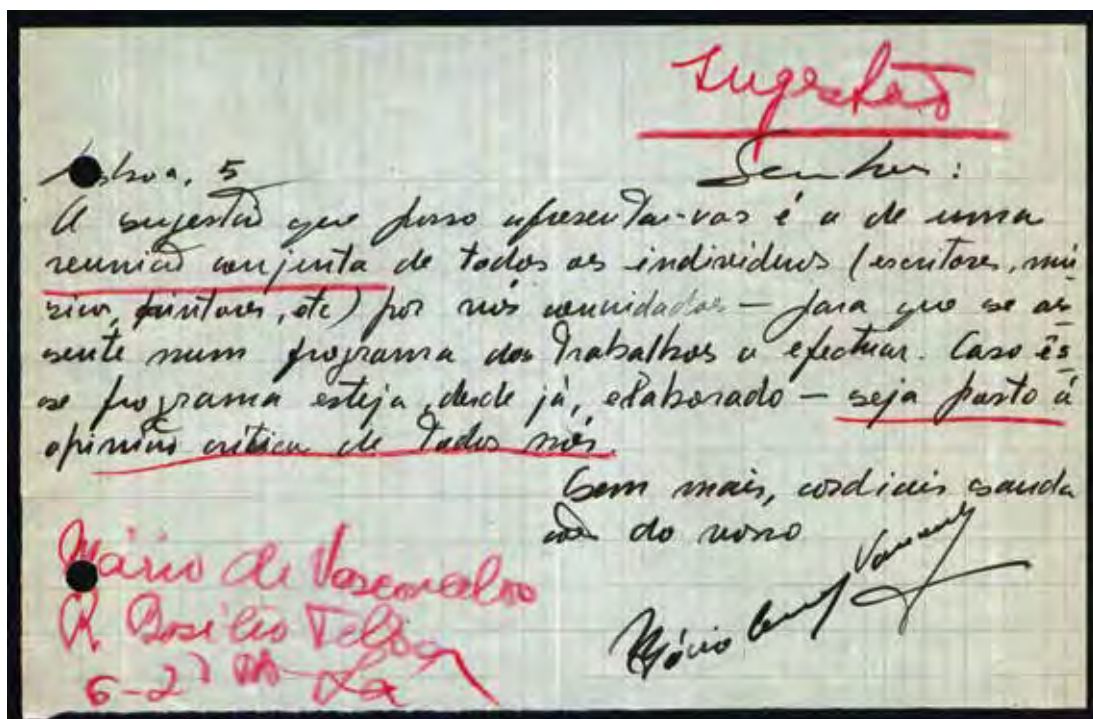 Sugestão
Lisboa, 5
Senhor:
A sugestão que posso apresentar-vos é a de uma
reunião conjunta de todos os indivíduos (escritores, mú
sicos, pintores, etc) por nós convidados — para que se as-
sente num programa dos trabalhos a efectuar. Caso ês-
se programa esteja, desde já, elaborado — seja posto à
opinião crítica de todos nós.
Sem mais, cordiais sauda
ções do vosso
Mário
Mário de Vasconcelos
R. Basílio Teles
6-2º